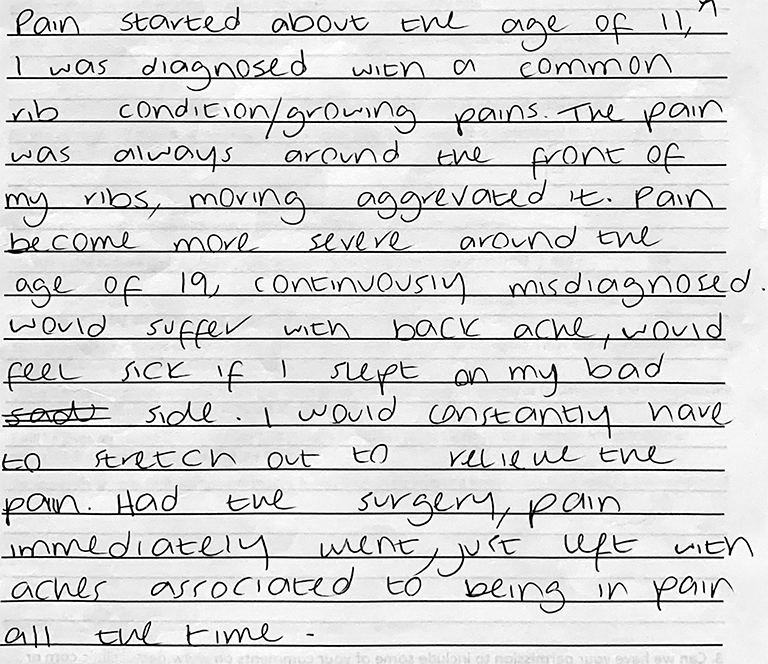 Pain started about the age of 11,
I was diagnosed with a common
rib condition/growing pains. The pain
was always around the front of
my ribs, moving aggrevated it. Pain
become more severe around the
age of 19, continuously misdiagnosed.
would suffer with back ache, would
feel sick if I slept on my bad
side. I would constantly have
to stretch out to relieve the
pain. Had the surgery, pain
immediately went, just left with
aches associated to being in pain
all the time.